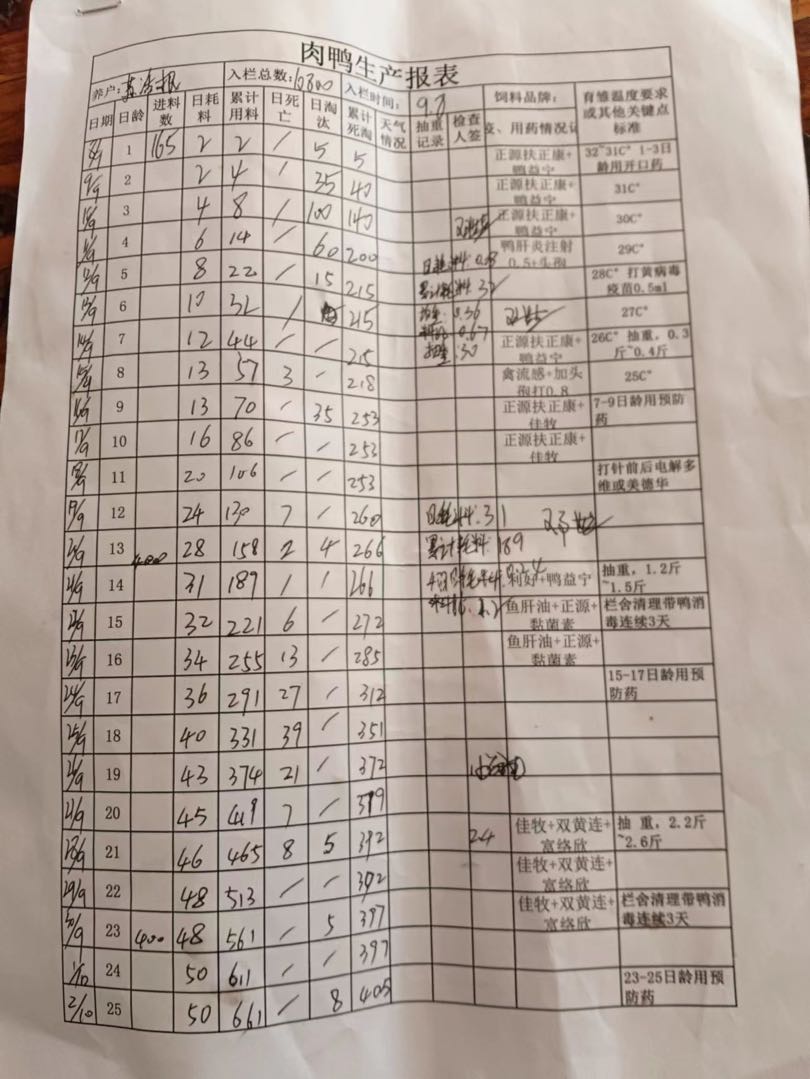 肉鸭生产报表
养户: 入栏总数: 6800 入栏时间: 9.7 饲料品牌: 育雏温度要求或其他关键点标准
日期 日龄 进料数 日耗料 累计用料 日死亡 日淘汰 累计死淘 天气情况 抽重记录 检查人签 疫、用药情况记
8/9 1 165 2 2 / 5 5 正源扶正康+鸭益宁 32~31C° 1-3日龄用开口药
9/9 2 2 4 / 35 40 正源扶正康+鸭益宁 31C°
10/9 3 4 8 / 100 140 正源扶正康+鸭益宁 30C°
11/9 4 6 14 / 60 200 鸭肝炎注射0.5+头孢 29C°
12/9 5 8 22 / 15 215 累计耗料: 32 28C° 打黄病毒疫苗0.5ml
13/9 6 10 32 / 215 0.36 27C°
14/9 7 12 44 / / 215 0.67 :30 正源扶正康+鸭益宁 26C° 抽重，0.3斤~0.4斤
15/9 8 13 57 3 / 218 禽流感+加头孢打0.8 25C°
16/9 9 13 70 / 35 253 正源扶正康+佳牧 7-9日龄用预防药
17/9 10 16 86 / / 253 正源扶正康+佳牧
18/9 11 20 106 / / 253 打针前后电解多维或美德华
19/9 12 24 130 7 / 260 日耗料: 31
20/9 13 400 28 158 2 4 266 累计耗料: 189
21/9 14 31 189 / / 266 +鸭益宁 抽重，1.2斤~1.5斤
22/9 15 32 221 6 / 272 鱼肝油+正源+黏菌素 栏舍清理带鸭消毒连续3天
23/9 16 34 255 13 / 285 鱼肝油+正源+黏菌素
24/9 17 36 291 27 / 312 15-17日龄用预防药
25/9 18 40 331 39 / 351
26/9 19 43 374 21 / 372
27/9 20 45 419 7 / 379
28/9 21 46 465 8 5 392 2.4 佳牧+双黄连+富络欣 抽 重，2.2斤~2.6斤
29/9 22 48 513 / / 392 佳牧+双黄连+富络欣
30/9 23 400 48 561 / 5 397 佳牧+双黄连+富络欣 栏舍清理带鸭消毒连续3天
1/10 24 50 611 / / 397
2/10 25 50 661 / 8 405 23-25日龄用预防药